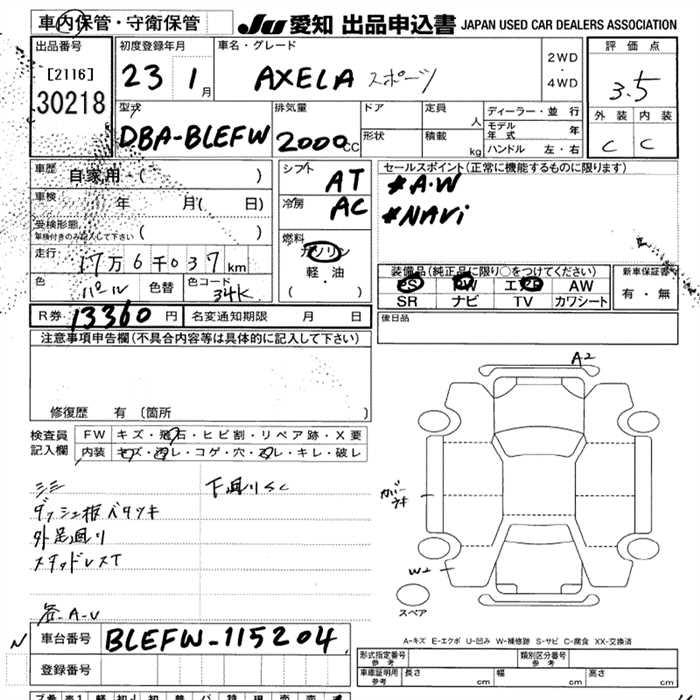 車内保管・守衛保管
JU 愛知 出品申込書 JAPAN USED CAR DEALERS ASSOCIATION
出品番号
[2116]
30218
初度登録年月
23 1 月
車名・グレード
AXELA スポーツ
2WD
・
4WD
評価点
3.5
外装 内装
C C
型式
DBA-BLEFW
排気量
2000 CC
ドア
形状
定員 人
積載 kg
ディーラー・並行
モデル年式 年
ハンドル 左・右
車歴
自家用・( )
車検 年 月( 日)
受検形態
車検付きのみ記入して下さい ( )
走行
17万6千037km
色
パール
色替
色コード
34K
シフト
AT
冷房
AC
燃料
ガソリン
軽・油
( )
セールスポイント(正常に機能するものに限ります)
#A・W
#NAVi
装備品(純正品に限り○をつけてください)
PS PW エアB AW
SR ナビ TV カワシート
新車保証書
有・無
R券 13360 円
名変通知期限 月 日
後日品
注意事項申告欄(不具合内容等は具体的に記入して下さい)
修復歴 有 〔箇所 〕
検査員
記入欄
FW キズ・飛石・ヒビ割・リペア跡・X要
内装 キズ・汚レ・コゲ・穴・スレ・キレ・破レ
シミ
下廻りSC
ダッシュ框ベタツキ
外足廻り
スタッドレスT
A2
W2
スペア
A-キズ E-エクボ U-凹み W-補修跡 S-サビ C-腐食 XX-交換済
N
車台番号
BLEFW-115204
登録番号
形式指定番号
参考
類別区分番号
参考
車庫証明用
参考
長さ cm 幅 cm 高さ cm